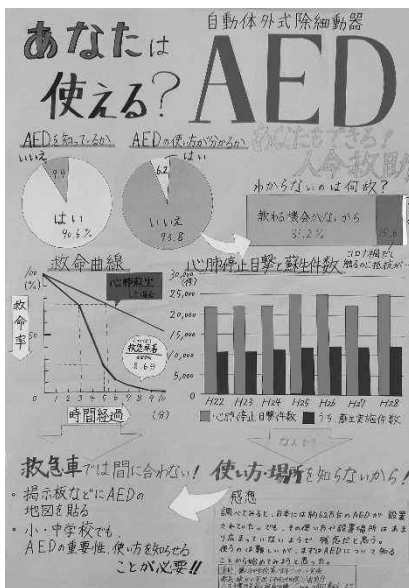 自動体外式除細動器
あなたは
使える?
AED
AEDを知っているか
いいえ
9.4
はい
90.6%
AEDの使い方が分かるか
はい
6.2
いいえ
93.8
あなたもできる!
人命救助
わからないのは何故?
教わる機会がないから
15.6
コロナ禍だと
触るのに抵抗が…
救命曲線
100
(%)
50
救命率
心肺蘇生
救急車到着
8.6分
0 1 2 3 4 5 6 7 8 9 10
時間経過
(分)
心肺停止目撃と蘇生件数
30,000
(件)
25,000
20,000
15,000
10,000
5,000
0
H22 H23 H24 H25 H26 H27 H28
心肺停止目撃件数
うち蘇生実施件数
なんで?
救急車では間に合わない!
・掲示板などにAEDの
地図を貼る
・小・中学校でも、
AEDの重要性、使い方を知らせる
ことが必要!!
使い方・場所を知らないから!
感想
調べてみると、日本には約62万台のAEDが設置
されていた。でも、その使い方や設置場所はあま
り広まっていないようで残念だと思う。
使うのは難しいが、まずはAEDについて知る
ことから始めてみようと思った。